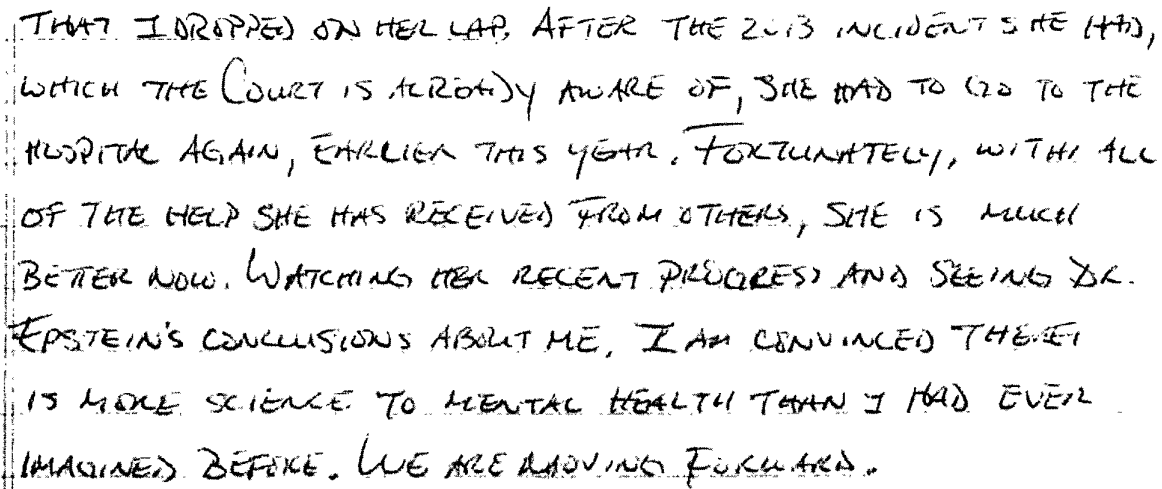 THAT I DROPPED ON HER LAP. AFTER THE 2013 INCIDENT SHE HAD,
WHICH THE COURT IS ALREADY AWARE OF, SHE HAD TO GO TO THE
HOSPITAL AGAIN, EARLIER THIS YEAR. FORTUNATELY, WITH ALL
OF THE HELP SHE HAS RECEIVED FROM OTHERS, SHE IS MUCH
BETTER NOW. WATCHING HER RECENT PROGRESS AND SEEING DR.
EPSTEIN'S CONCLUSIONS ABOUT ME, I AM CONVINCED THERE
IS MORE SCIENCE TO MENTAL HEALTH THAN I HAD EVER
IMAGINED BEFORE. WE ARE MOVING FORWARD.